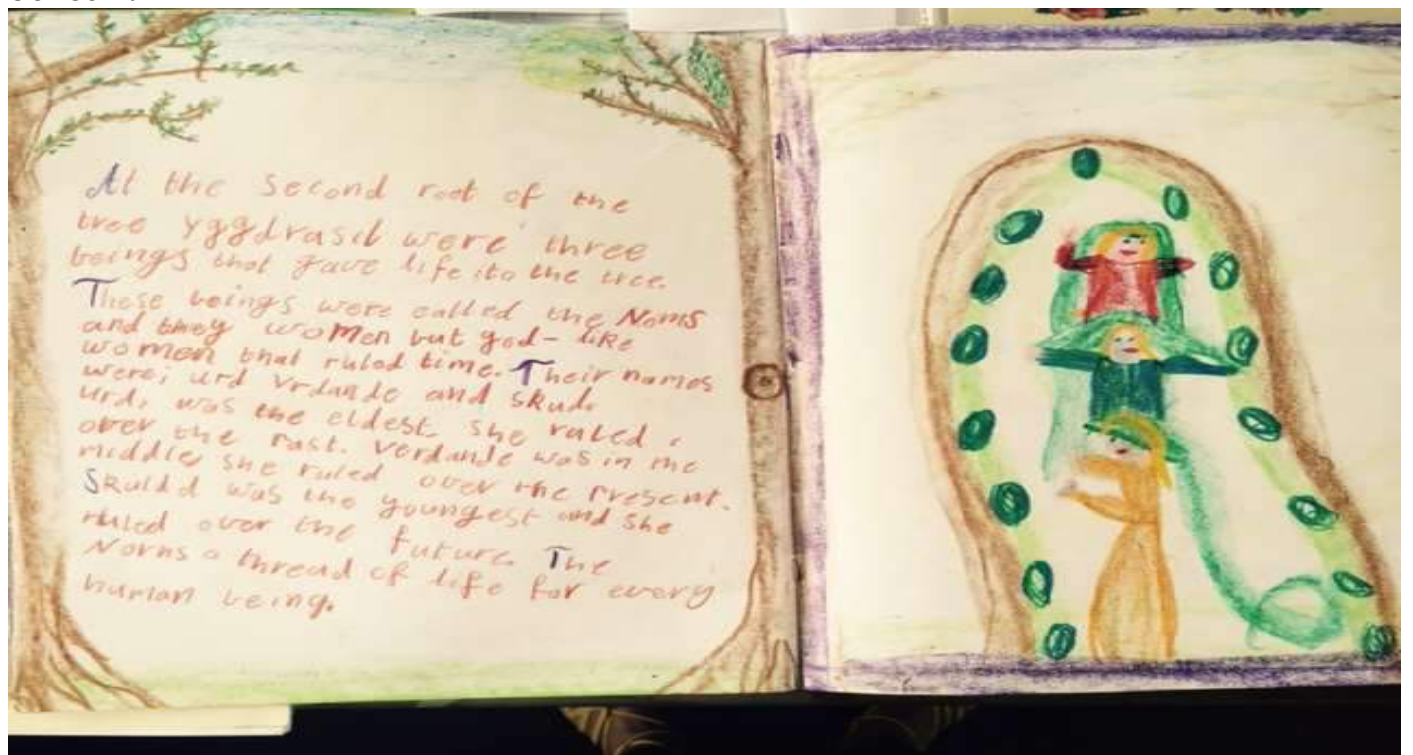 At the second root of the
tree Yggdrasil were three
beings that gave life ito the tree.
These beings were called the Norns
and they women but god-like
women that ruled time. Their names
were; urd Vrdande and Skud.
Urd, was the eldest she ruled
over the Past. Verdande was in the
middle, she ruled over the Present.
Skuld was the youngest and she
ruled over the future. The
Norns a thread of life for every
human being.